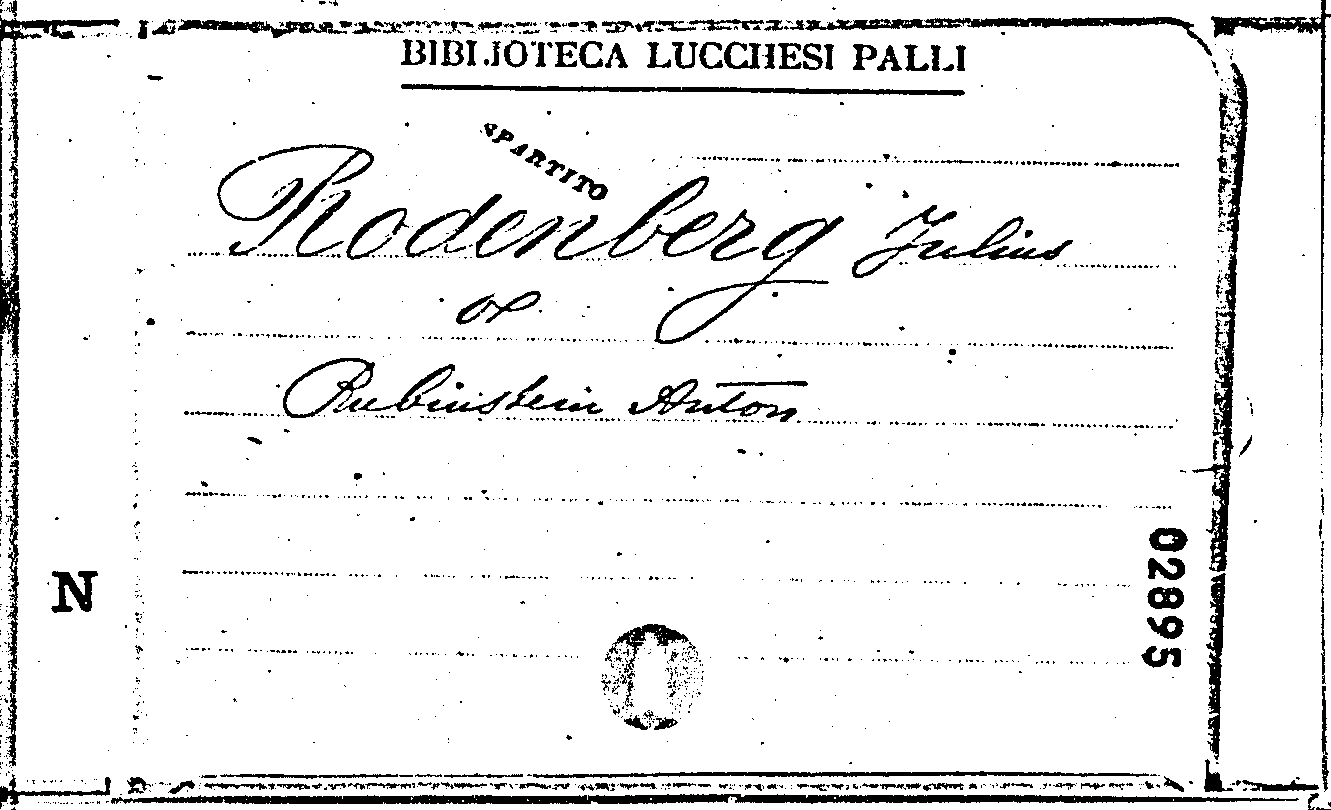 BIBLIOTECA LUCCHESI PALLI
SPARTITO
Rodenberg Julius
Rubinstein Anton
N
02895